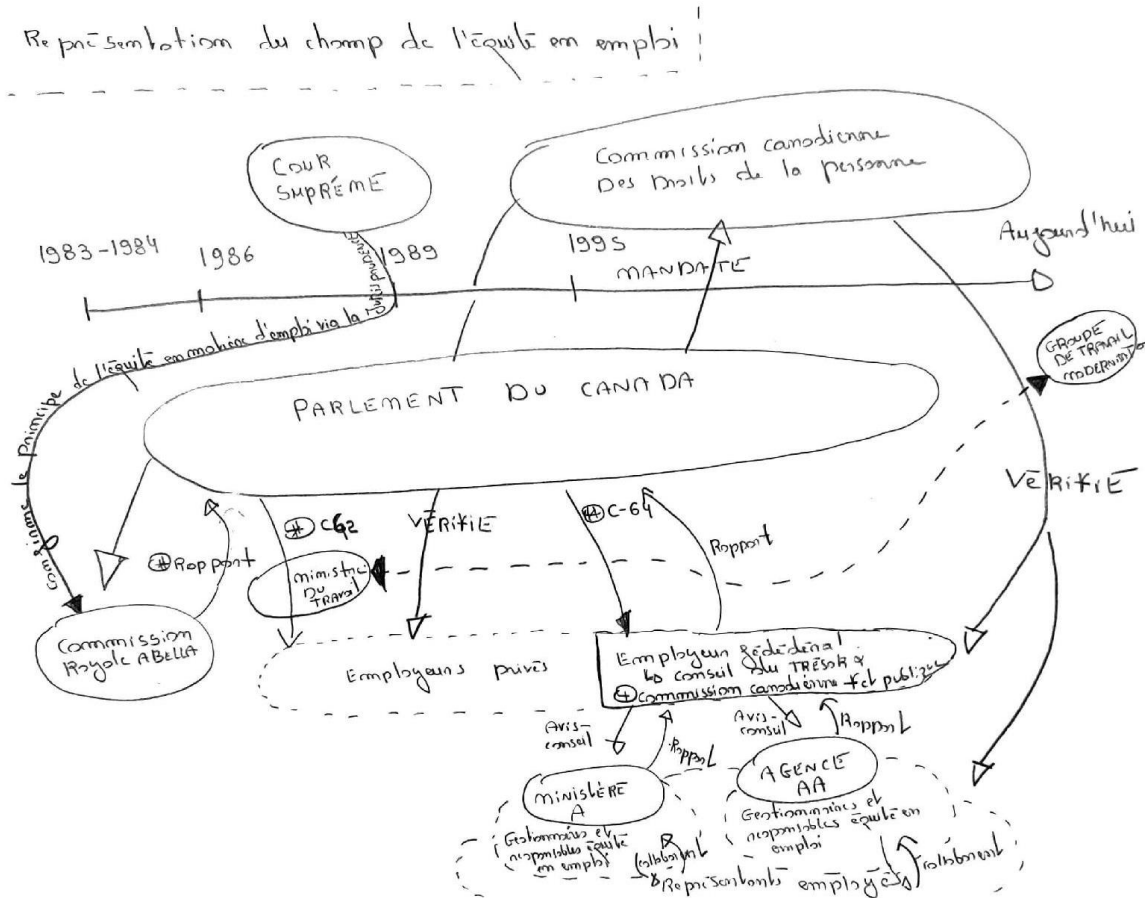 Représentation du champ de l'équité en emploi
COUR
SUPRÊME
Commission canadienne
Des Droits de la personne
1983-1984
1986
1989
1995
Aujourd'hui
MANDATE
confirme le principe de l'équité en matière d'emploi via la jurisprudence
GROUPE
DE TRAVAIL
PARLEMENT DU CANADA
VÉRIFIE
C-64
VÉRIFIE
Rapport
Rapport
Ministre
DU
TRAVAIL
Commission
Royale ABELLA
Employeurs privés
Employeur fédédéral
↳ conseil du TRÉSOR
commission canadienne
Avis-
conseil
Rapport
Avis-
conseil
Rapport
MINISTÈRE
A
AGENCE
AA
Gestionnaires et
responsables équité
en emploi
Gestionnaires et
responsables équité en
emploi
collaborent
collaborent
Représentants employés